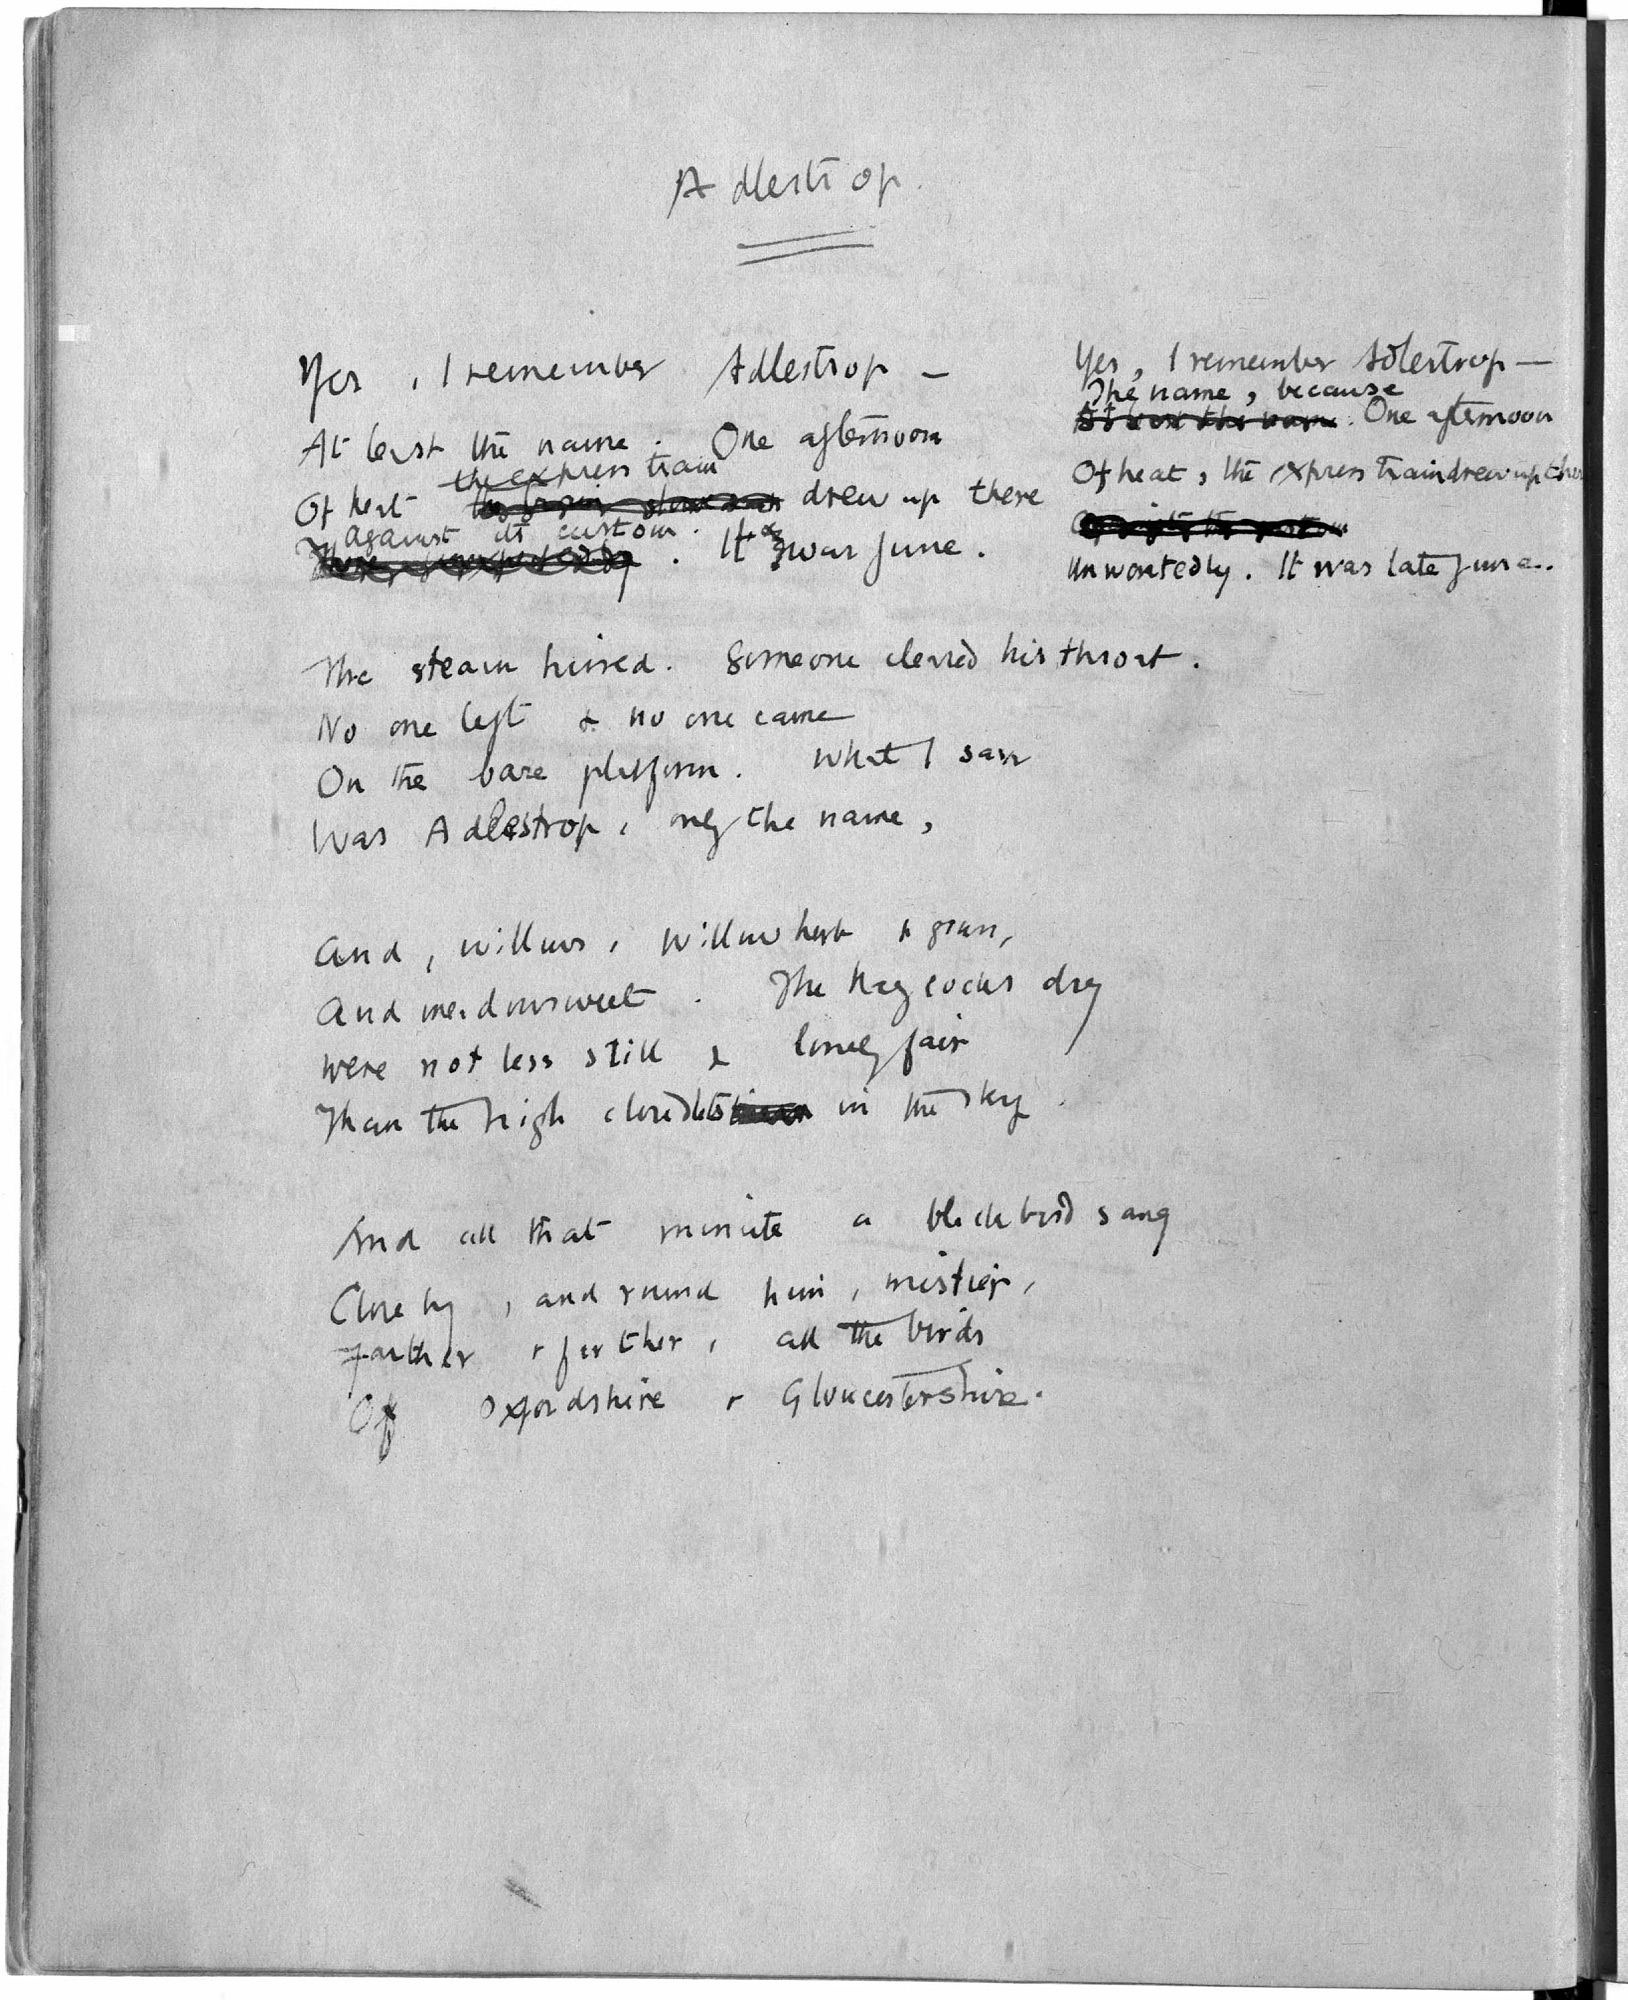 Adlestrop.
Yes, I remember Adlestrop —
At least the name. One afternoon
the express train
Of heat drew up there
against its custom.
. It was June.
Yes, I remember Adlestrop —
The name, because
At least the name. One afternoon
Of heat, the express train drew up there
Unwontedly. It was late June..
The steam hissed. Someone cleared his throat.
No one left & no one came
On the bare platform. What I saw
Was Adlestrop, only the name,
And, willows, willowherb & grass,
And meadowsweet. The haycocks dry
Were not less still & lonely fair
Than the high cloudlets in the sky.
And all that minute a blackbird sang
Close by, and round him, mistier,
Farther & farther, all the birds
Of Oxfordshire & Gloucestershire.